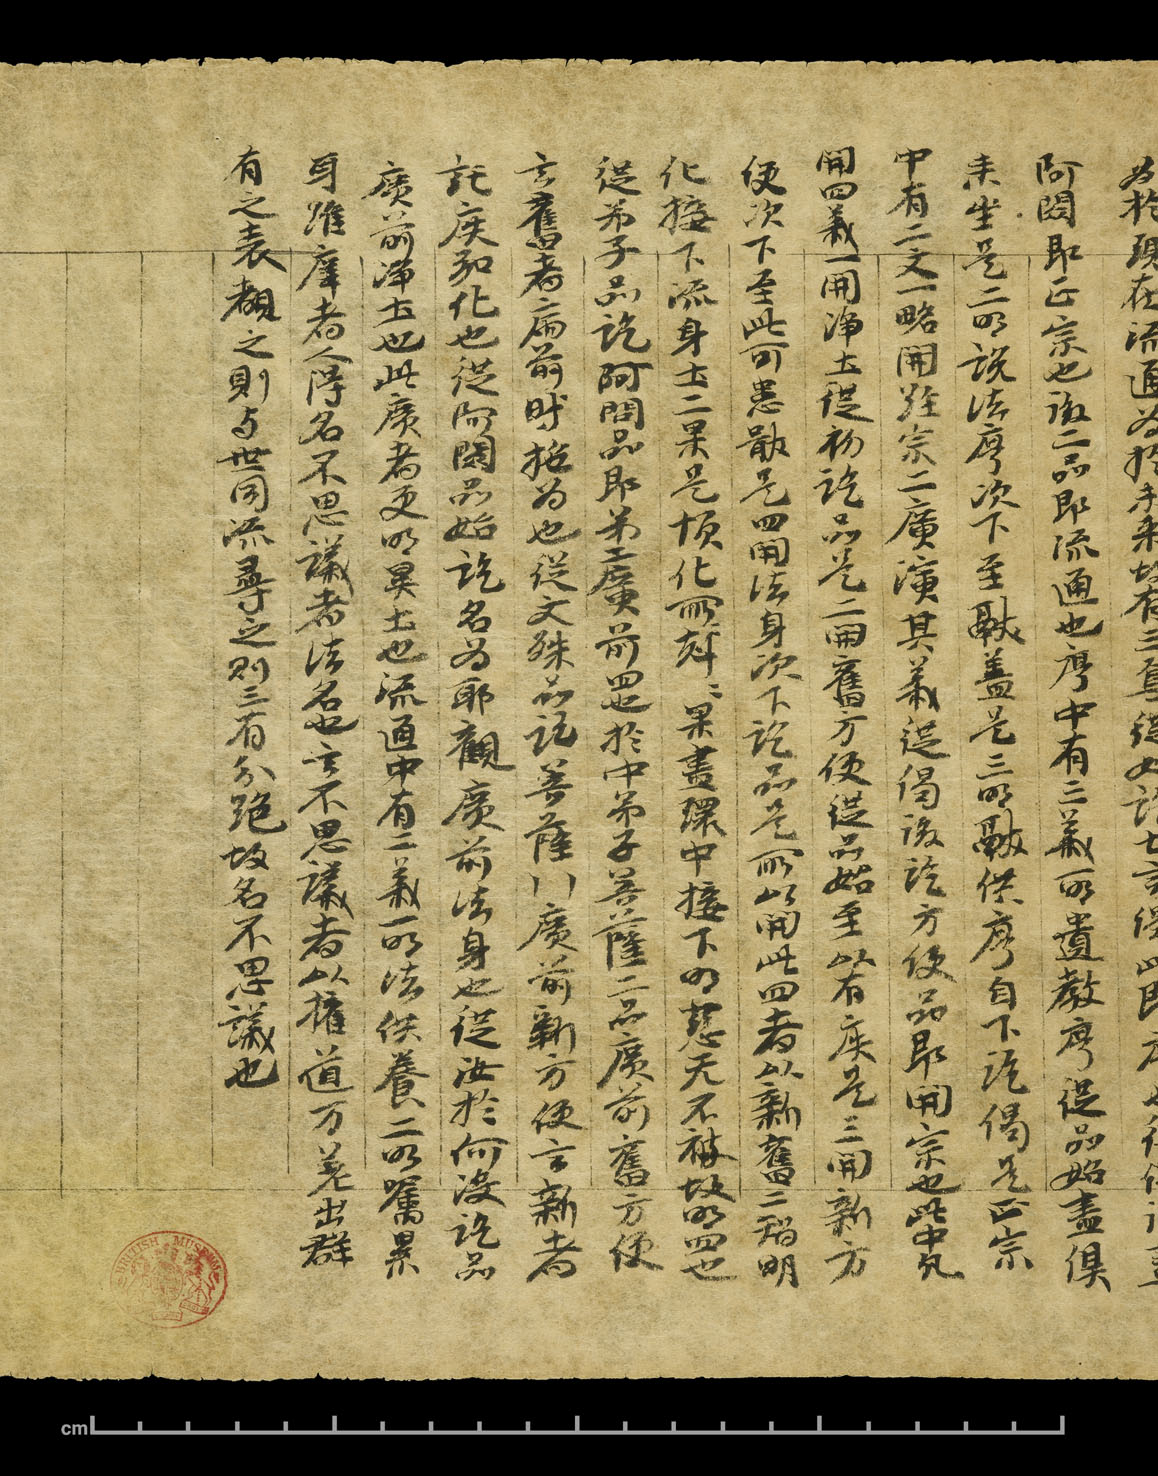 為於現在流通為於未來
阿閦即正宗也後二品即流通也序中有三義一明遺教序從品始盡俱
來坐是二明說法序次下至獻蓋是三明獻供序自下訖偈是正宗
中有二文一略開經宗二廣演其義從偈後訖方便品即開宗也此中凡
開四義一開淨土從初訖品是二開舊方便從品始至以有疾是三開新方
便次下至此可患猒是四開法身次下訖品是所以開此四者以新舊二智明
化接下流身土二果是頓化所剋〻果盡環中接下明慈无不被故明四也
從弟子品訖阿閦品即第二廣前四也於中弟子菩薩二品廣前舊方便
言舊者二廗前時施為也從文殊品訖菩薩行廣前新方便言新者
託疾所化也從阿閦品始訖名為耶觀廣前法身也從汝於何沒訖品
廣前淨土也此廣者更明異土也流通中有二義一明法供養二明囑累
身維摩者人得名不思議者法名也言不思議者以權道万差出群
有之表覩之則与世同流尋之則三有分跪故名不思議也
cm
BRITISH MUSEUM